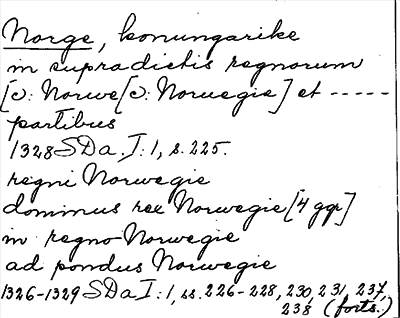 Norge, konungarike
in supradictis regnorum
[ɔ: Norwe[ɔ: Norwegie] et -----
partibus
1328 SDa I: 1, s. 225.
regni Norwegie
dominus rex Norwegie [4 ggr]
in regno Norwegie
ad pondus Norwegie
1326-1329 SDa I: 1, ss. 226-228, 230, 231, 237,
238 (forts.)